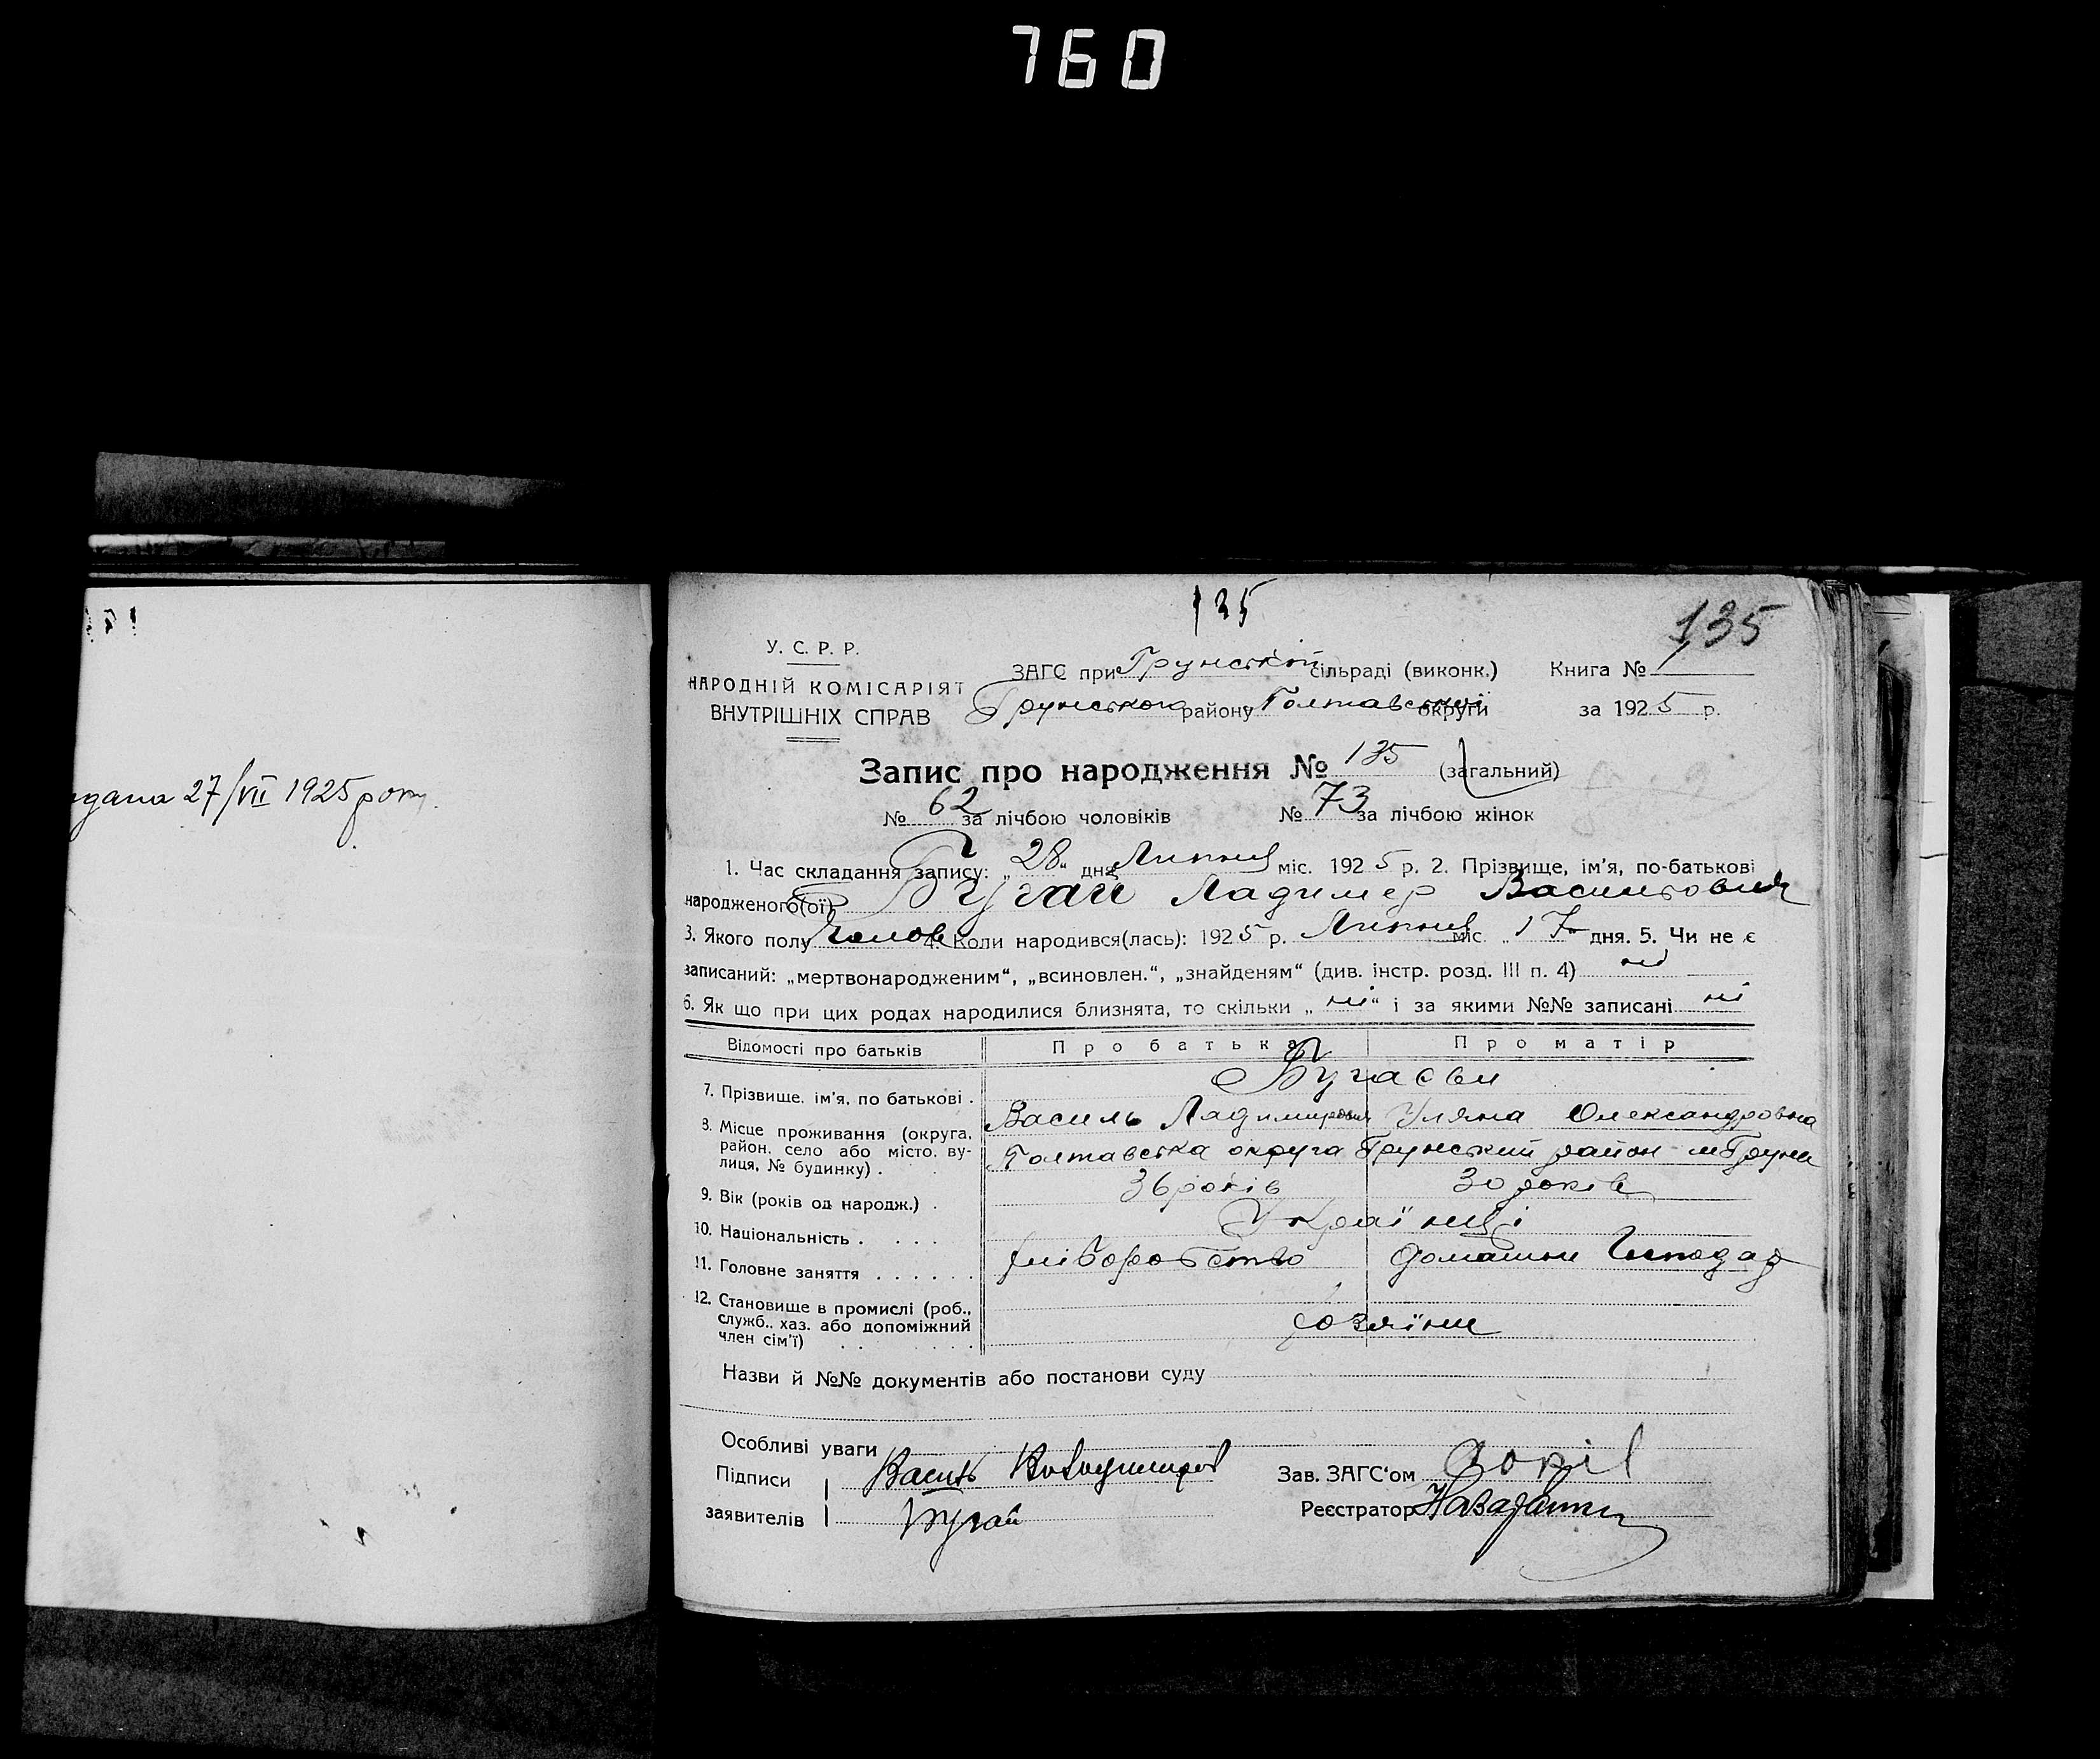 760
135
135
У. С. Р. Р.
НАРОДНІЙ КОМІСАРІЯТ
ВНУТРІШНІХ СПРАВ
ЗАГС при Грунській сільраді (виконк.) Книга №
Грунського району Полтавської округи за 1925 р.
Запис про народження № 135 (загальний)
№ 62 за лічбою чоловіків № 73 за лічбою жінок
1. Час складання запису: „28" дня Липня міс. 1925 р. 2. Прізвище, ім'я, по-батькові
народженого(ої) Бугай Ладимер Васильович
3. Якого полу Чолов 4. Коли народився(лась): 1925 р. Липня міс. „17" дня. 5. Чи не є
записаний: „мертвонародженим“, „всиновлен.“, „знайденям“ (див. інстр. розд. III п. 4) ні
6. Як що при цих родах народилися близнята, то скільки „ні“ і за якими №№ записані ні
Відомості про батьків Про батька Про матір
Бугаєви
7. Прізвище, ім'я, по батькові . Василь Ладимирович Уляна Олександровна
8. Місце проживання (округа,
район, село або місто, ву-
лиця, № будинку) . Полтавська округа Грунський район м Груни
9. Вік (років од народж.) . 36 років 30 років
10. Національність . . . . Українці
11. Головне заняття . . . . . . хліборобство домашнє Господар
12. Становище в промислі (роб.,
служб., хаз. або допоміжний
член сім'ї) . . . . . . хозяїни
Назви й №№ документів або постанови суду
Особливі уваги
Підписи Василь Володимиров Зав. ЗАГС'ом
заявителів Бугай Реєстратор
27/VII 1925 року.